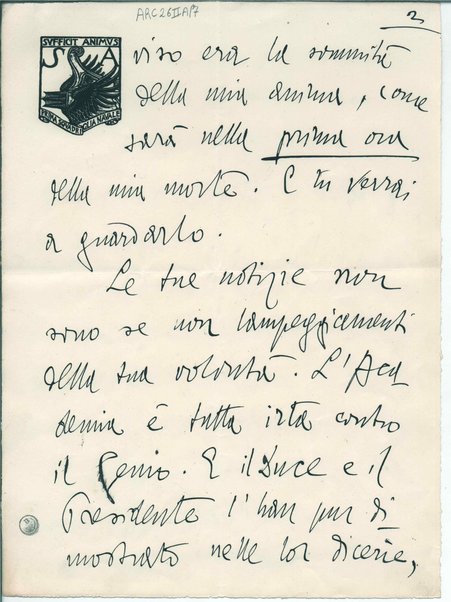 ARC26IIA/7
2
SVFFICIT ANIMVS
S A
PRIMA SQVADRIGLIA NAVALE
viso era la sommità
della mia anima, come
sarà nella prima ora
della mia morte. E tu verrai
a guardarlo.
Le tue notizie non
sono se non lampeggiamenti
della tua volontà. L'Acca
demia è tutta irta contro
il Genio. E il Duce e il
Presidente l'han pur di
mostrato nelle lor dicerie,